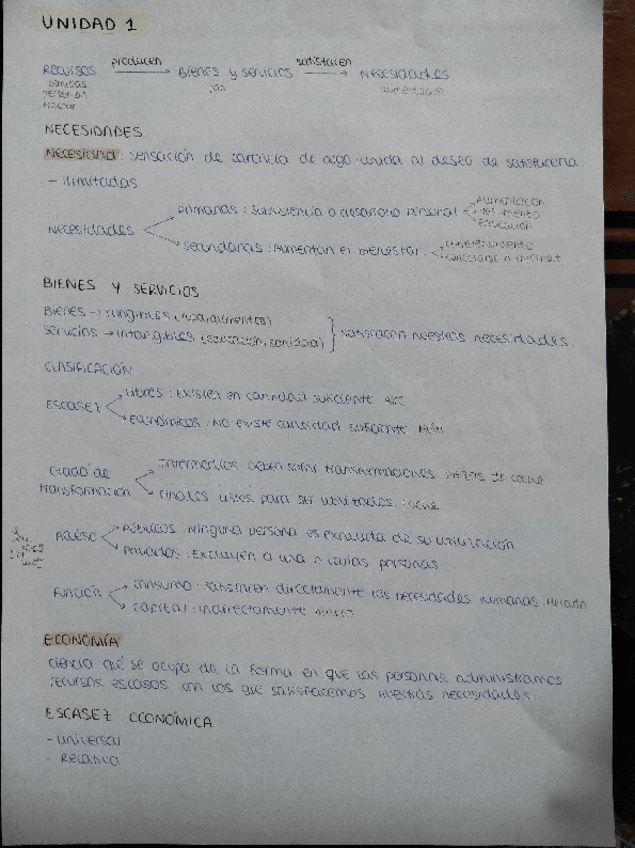 UNIDAD 1
producen satisfacen
Recursos → Bienes y servicios → Necesidades
NECESIDADES
Necesidad: sensación de carencia de algo unida al deseo de satisfacerla
- ilimitadas
Primarias: subsistencia o desarrollo personal
Alimentación
Educación
Necesidades
Secundarias: Aumentan el bienestar.
BIENES Y SERVICIOS
Bienes → tangibles
Servicios → intangibles (educación, sanidad)
satisfacen nuestras necesidades.
CLASIFICACIÓN
Libres: Existen en cantidad suficiente
ESCASEZ
Económicos: No existe cantidad suficiente
Intermedios deben sufrir transformaciones
Grado de
transformación
Finales listos para ser utilizados
Públicos ninguna persona es excluida de su utilización
Acceso
Privados: Excluyen a una o varias personas
Consumo: satisfacen directamente las necesidades humanas.
Función
Capital: indirectamente
ECONOMÍA
ciencia que se ocupa de la forma en que las personas administramos
recursos escasos con los que satisfacemos nuestras necesidades.
ESCASEZ ECONÓMICA
- universal
- Relativa